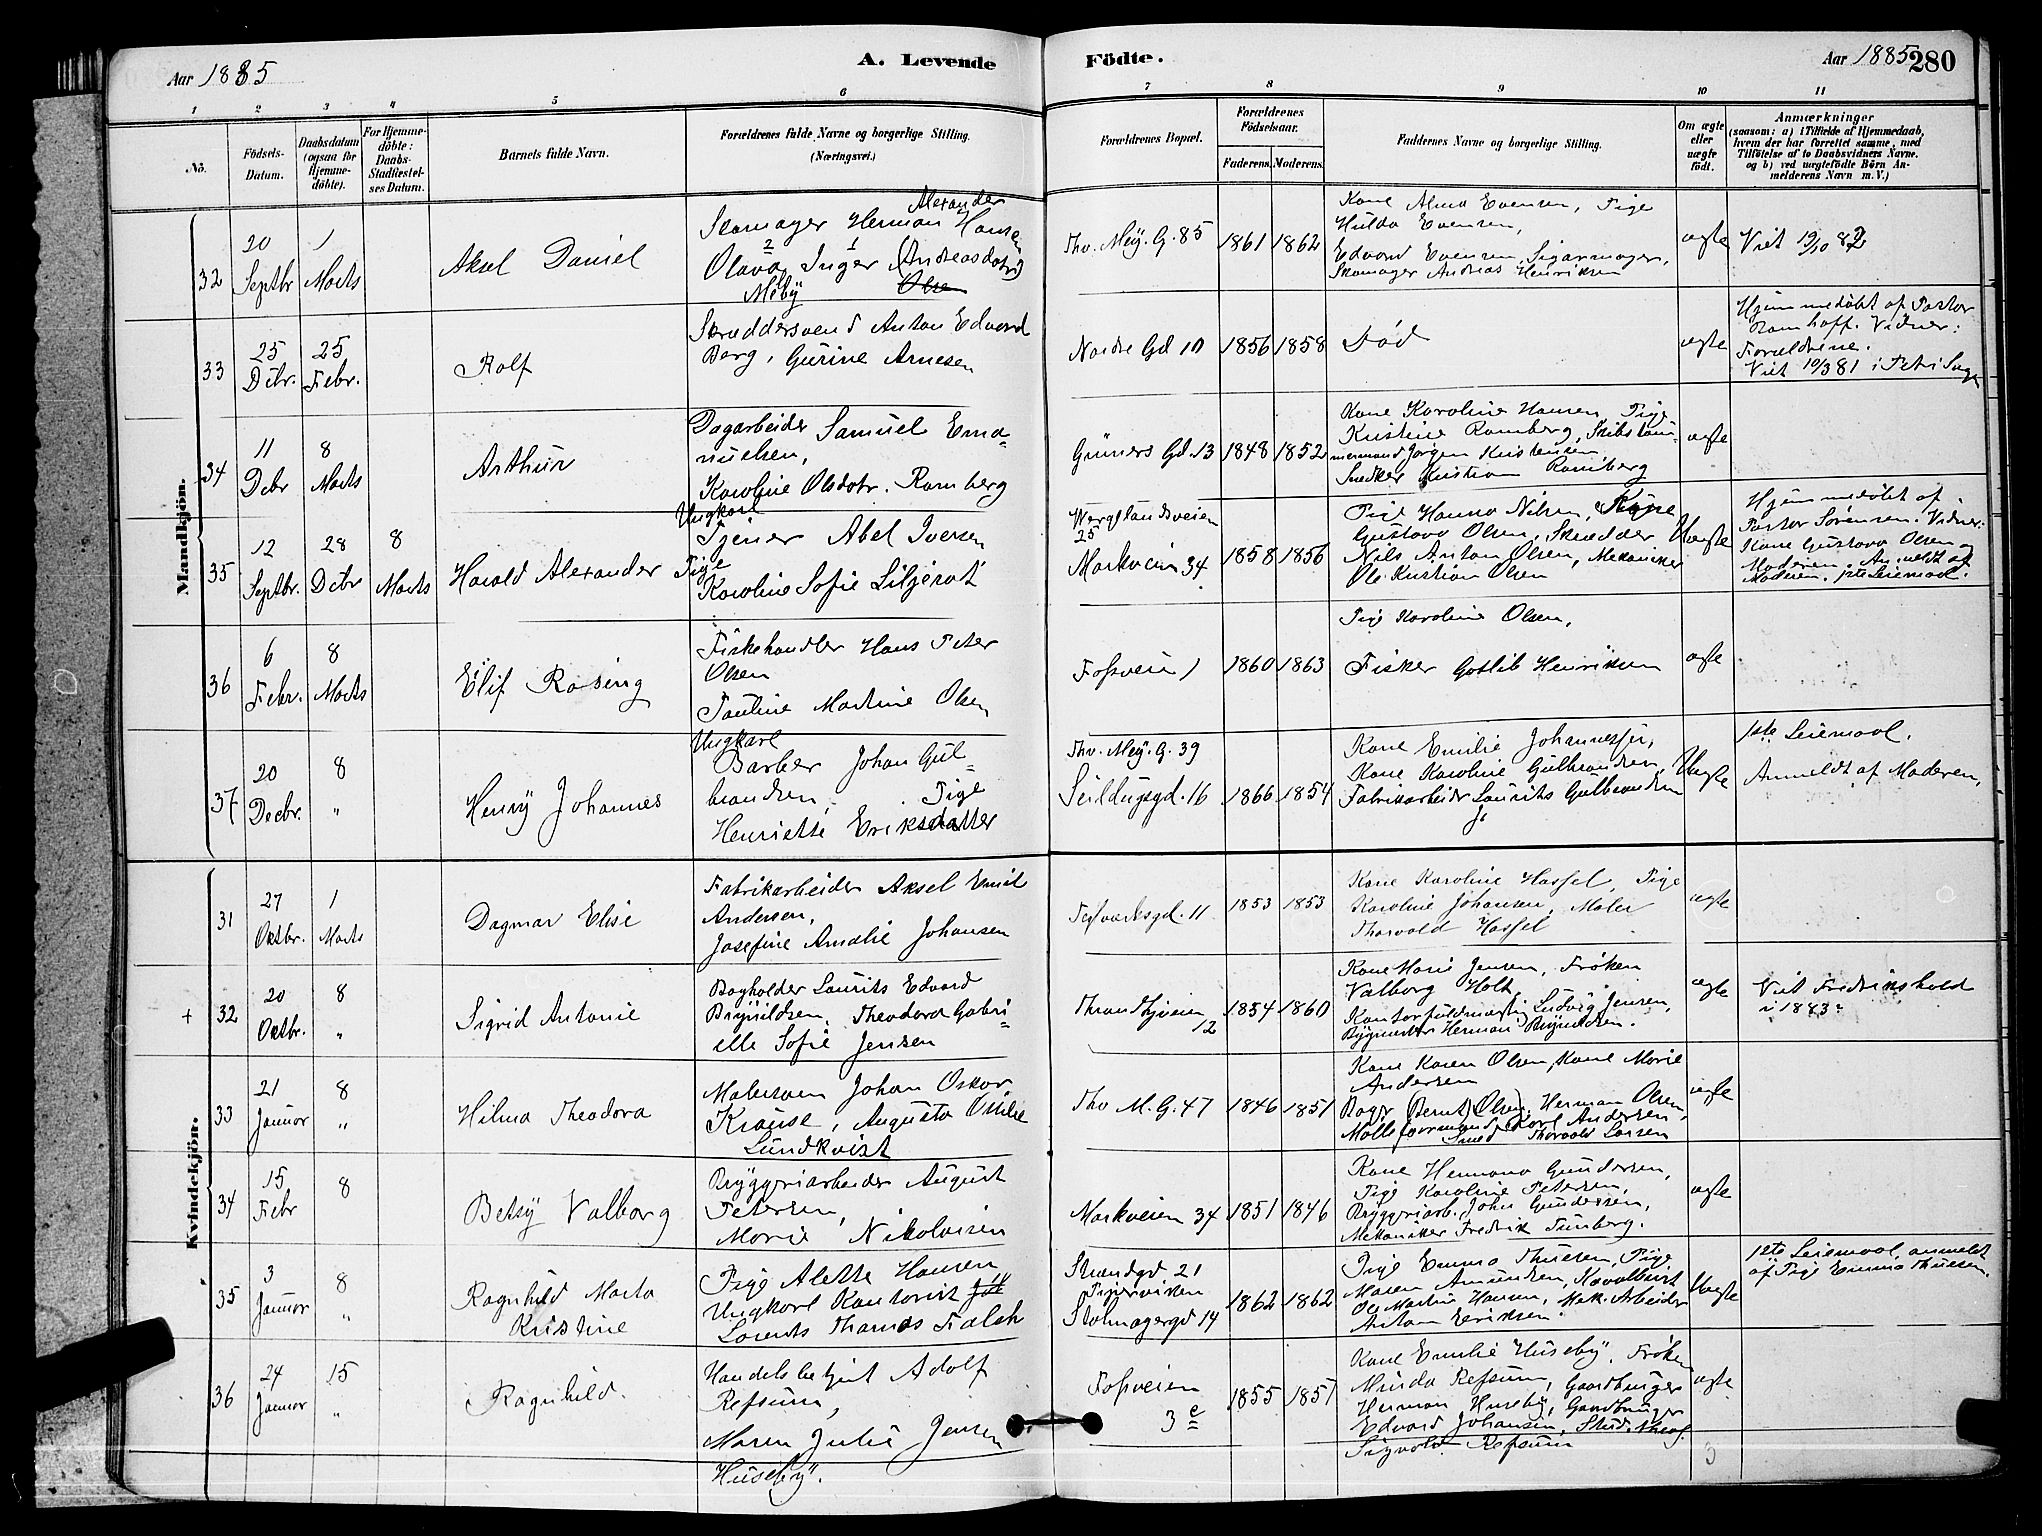 Aar 1885
A. Levende
Födte.
Aar 1885
280
1
2
3
4
5
6
7
8
9
10
11
No.
Födsels-
Datum.
Daabsdatum
(ogsaa for
Hjemme-
döbte).
For Hjemme-
döbte:
Daabs-
Stadfæstel-
ses Datum.
Barnets fulde Navn.
Forældrenes fulde Navne og borgerlige Stilling.
(Næringsvei.)
Forældrenes Bopæl.
Forældrenes
Födselsaar.
Faderens.
Moderens.
Faddernes Navne og borgerlige Stilling.
Om ægte
eller
uægte
födt.
Anmærkninger
(saasom: a) i Tilfælde af Hjemmedaab,
hvem der har forrettet samme, med
Tilföielse af to Daabsvidners Navne.
og b) ved uægtefödte Börn An-
melderens Navn m. V.)
Mandkjön.
32
20
Septbr
1
Marts
Aksel Daniel
Alexander
Skomager Herman Hansen
2 1
Olava Inger (Andreasdotr)
Moby Olsen
Thv. Mey. G. 85
1861
1862
Kone Alma Evensen, Pige
Hulda Evensen,
Edvard Evensen, Sigarmager,
Skomager Andreas Henriksen
ægte
Viet 19/10 82
33
25
Dcbr.
25
Febr.
Rolf
Skræddersvend Anton Edvard
Berg, Gurine Arnesen
Nordre Gd 10
1856
1858
Død
ægte
Hjemmedøbt af Pastor
Ramhoff. Vidner:
Forældrene.
Viet 10/3 81 i Petri Sogn
34
11
Dcbr
8
Marts
Arthur
Dagarbeider Samuel Ema-
nuelsen,
Karoline Olsdotr. Ramberg
Gruners Gd. 13
1848
1852
Kone Karoline Hansen, Pige
Kristine Ramberg, Skibstøm-
mermand Jørgen Kristensen,
Snedker Kristian Ramberg
ægte
35
12
Septbr.
28
Dcbr
8
Marts
Harald Alexander
Ungkarl
Tjener Abel Iversen
Pige
Karoline Sofie Liljerot
Wergelandsveien
25
Markveien 34
1858
1856
Pige Hanna Nilsen, Kone
Gustava Olsen, Skrædder
Nils Anton Olsen, Mekaniker
Ole Kristian Olsen
Uægte
Hjemmedøbt af
Pastor Sørensen. Vidner:
Kone Gustava Olsen og
Moderen. Anmeldt af
Moderen. 1ste Leiermaal.
36
6
Febr.
8
Marts
Eilif Rosing
Fiskehandler Hans Peter
Olsen
Pauline Martine Olsen
Fossveien 1
1860
1863
Pige Karoline Olsen,
Fisker Gotlib Henriksen
ægte
37
20
Decbr.
8
"
Henry Johannes
Ungkarl
Barber Johan Gul-
brandsen, Pige
Henriette Eriksdatter
Thv. Mey. G. 39
Seildugsgd. 16
1866
1854
Kone Emilie Johannessen,
Kone Karoline Gulbrandsen,
Fabrikarbeider Laurits Gulbrandsen
Uægte
1ste Leiermaal.
Anmeldt af Moderen.
Kvindekjön.
31
27
Oktbr.
1
Marts
Dagmar Elise
Fabrikarbeider Aksel Emil
Andersen,
Josefine Amalie Johansen
11
1853
1853
Kone Karoline Hassel, Pige
Karoline Johansen, Maler
Thorvald Hassel
ægte
+
32
20
Oktbr.
8
"
Sigrid Antonie
Bogholder Laurits Edvard
Brynildsen, Theodora Gabri-
elle Sofie Jensen
Throndhjveien
12
1854
1860
Kone Marie Jensen, Frøken
Valborg Holt,
Kontorfuldmægtig Ludvig Jensen,
Bygmester Herman Brynildsen.
ægte
Viet Fredrikshald
i 1883
33
21
Januar
8
"
Hilma Theodora
Malersvend Johan Oskar
Krause, Augusta Otilie
Lundkvist
Thv M. G. 47
1846
1851
Kone Karen Olsen, Kone Marie
Andersen
Bager (Bernt) Olsen, Herman Olsen,
Mølleformand Karl Andersen,
Smed Thorvald Larsen
ægte
34
15
Febr
8
Betsy Valborg
Bryggeriarbeider August
Petersen,
Marie Nikolaisen
Markveien 34
1851
1846
Kone Hermana Gundersen,
Pige Karoline Petersen,
Bryggeriarb. John Gundersen,
Mekaniker Fredrik Tunberg.
ægte
35
3
Januar
8
"
Ragnhild Marta
Kristine
Pige Alette Hansen
Ungkarl Kontorist
Lorents Thomas Falch
Strandgd 21
Pipervikén
Stolmagergd 14
1862
1862
Pige Emma Thuesen, Pige
Maren Amundsen, Kavallerist
Ole Martin Hansen, Mek. Arbeider
Anton Eriksen.
Uægte
1ste Leiermaal, anmeldt
af Pige Emma Thuesen.
36
24
Januar
15
"
Ragnhild.
Handelsbetjent Adolf
Refsum,
Maren Julie Jensen
Huseby.
Fossveien
3 e
1855
1857
Kone Emilie Huseby, Frøken
Minda Refsum, Gaardbruger
Herman Huseby, Gaardbruger
Edvard Johansen, Stud. theol.
Sigvald Refsum
ægte
3